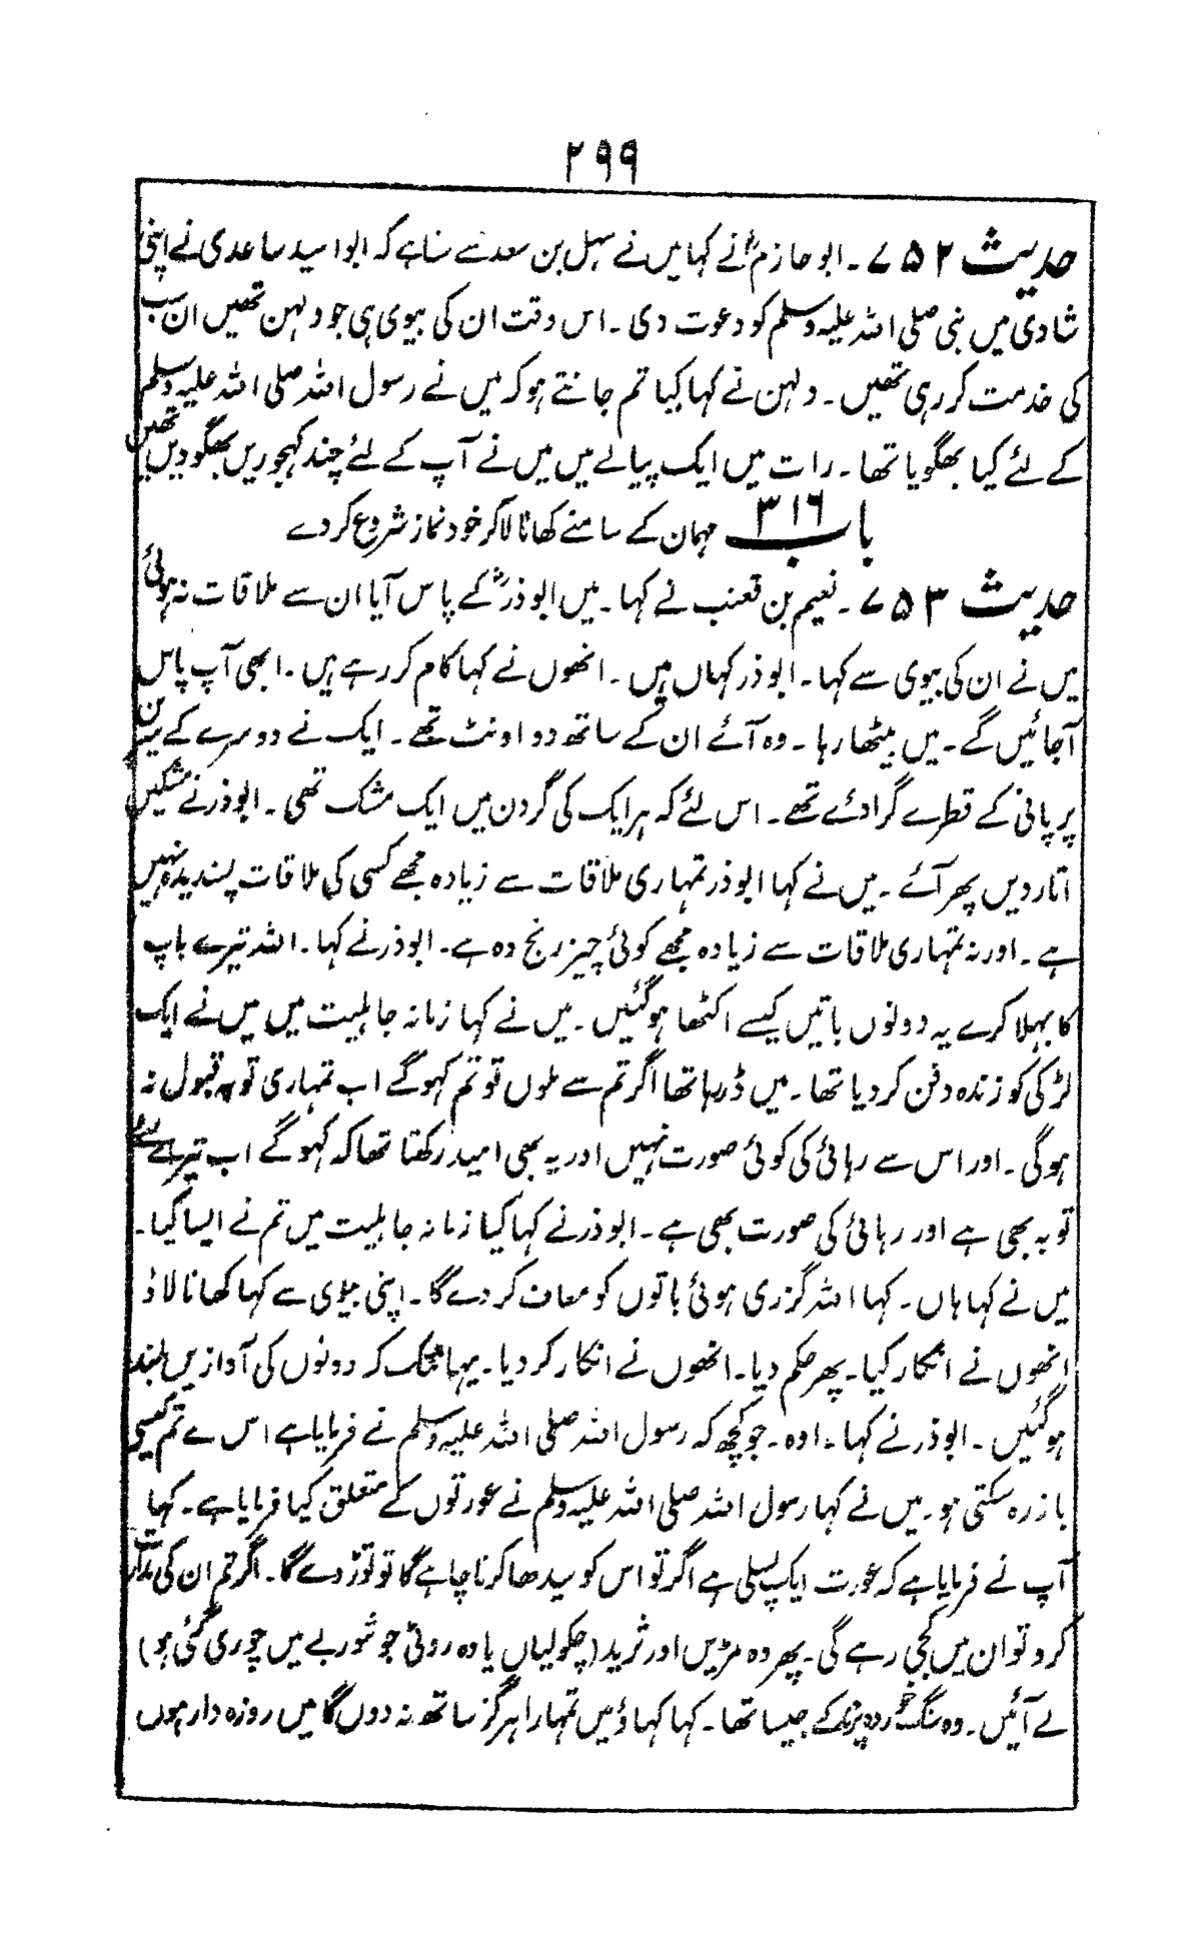 ۲۹۹
حدیث ۷۵۲۔ ابو حازمؒ نے کہا میں نے سہل بن سعدؓ سے سنا ہے کہ ابو اسید ساعدی نے اپنی
شادی میں نبی صلی اللہ علیہ وسلم کو دعوت دی۔ اس وقت ان کی بیوی ہی جو دلہن تھیں ان سب
کی خدمت کر رہی تھیں۔ دلہن نے کہا کیا تم جانتے ہو کہ میں نے رسول اللہ صلی اللہ علیہ وسلم
کے لئے کیا بھگویا تھا۔ رات میں ایک پیالے میں میں نے آپ کے لئے چند کہجوریں بھگو دیں تھیں
باب ۳۱۶ مہمان کے سامنے کھانا لا کر خود نماز شروع کر دے
حدیث ۷۵۳۔ نعیم بن قعنب نے کہا۔ میں ابوذرؓ کے پاس آیا ان سے ملاقات نہ ہوئی
میں نے ان کی بیوی سے کہا۔ ابوذر کہاں ہیں۔ انھوں نے کہا کام کر رہے ہیں۔ ابھی آپ پاس
آجائیں گے۔ میں بیٹھا رہا۔ وہ آئے ان کے ساتھ دو اونٹ تھے۔ ایک نے دوسرے کے سرین
پر پانی کے قطرے گرادئے تھے۔ اس لئے کہ ہر ایک کی گردن میں ایک مشک تھی۔ ابوذر نے مشکیں
اتار دیں پھر آئے۔ میں نے کہا ابوذر تمہاری ملاقات سے زیادہ مجھے کسی کی ملاقات پسندیدہ نہیں
ہے۔ اور نہ تمہاری ملاقات سے زیادہ مجھے کوئی چیز رنج دہ ہے۔ ابوذر نے کہا۔ اللہ تیرے باپ
کا بہلا کرے یہ دونوں باتیں کیسے اکٹھا ہو گئیں۔ میں نے کہا زمانہ جاہلیت میں میں نے ایک
لڑکی کو زندہ دفن کر دیا تھا۔ میں ڈر رہا تھا اگر تم سے ملوں تو تم کہو گے اب تمہاری توبہ قبول نہ
ہوگی۔ اور اس سے رہائی کی کوئی صورت نہیں اور یہ بھی امید رکھتا تھا کہ کہو گے اب تیرے لئے
توبہ بھی ہے اور رہائی کی صورت بھی ہے۔ ابوذر نے کہا کیا زمانہ جاہلیت میں تم نے ایسا کیا۔
میں نے کہا ہاں۔ کہا اللہ گزری ہوئی باتوں کو معاف کر دے گا۔ اپنی بیوی سے کہا کھانا لاؤ
انھوں نے انکار کیا۔ پھر حکم دیا۔ انھوں نے انکار کر دیا۔ یہانتک کہ دونوں کی آوازیں بلند
ہوگئیں۔ ابوذر نے کہا۔ اوہ۔ جو کچھ کہ رسول اللہ صلی اللہ علیہ وسلم نے فرمایا ہے اس سے تم کیسی
باز رہ سکتی ہو۔ میں نے کہا رسول اللہ صلی اللہ علیہ وسلم نے عورتوں کے متعلق کیا فرمایا ہے۔ کہا
آپ نے فرمایا ہے کہ عورت ایک پسلی ہے اگر تو اس کو سیدھا کرنا چاہے گا تو توڑ دے گا۔ اگر تم ان کی مدارات
کرو تو ان میں کجی رہے گی۔ پھر وہ مڑیں اور ثرید (چکولیاں یا وہ روٹی جو شوربے میں چوری گئی ہو)
لے آئیں۔ وہ سنگ خوردہ پرند کے جیسا تھا۔ کہا کہاؤ میں تمہارا ہرگز ساتھ نہ دوں گا میں روزہ دار ہوں